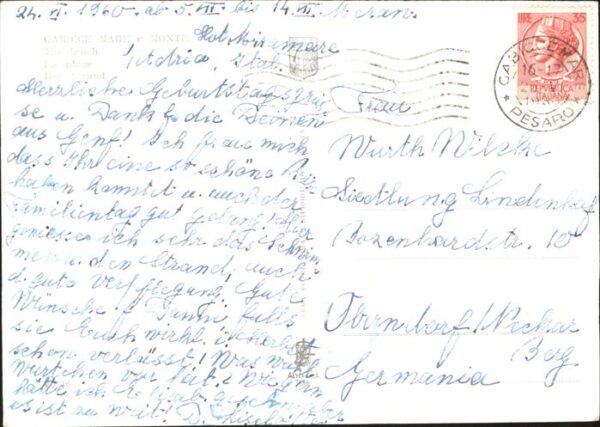 24. VI. 1960. ab 5. VII bis 14. VII. Meran.
Hot Miramare
GABICCE MARE e MONTE
La spiaggia
La plage
Der Strand
Adria, Ital.
Herzliche Geburtstagsgrüs
se u. Dank f die Deinen
aus Genf! Ich freue mich
dass Ihr eine so schöne
haben konntet u. auch der
Familientag gut gelang! Hier
geniesse ich sehr das Schwim
men u. den Strand, auch
d. gute Verpflegung. Gute
Wünsche f. falls
sie Euch wirkl.
schon verlässt! Was
vor
hätte ich
es ist zu weit! D.
LIRE 35
REPVBBLICA
ITALIANA
GABICCE MARE
16
* PESARO *
Frau
Wurth Wilcke
Siedlung Lindenhof
Bozenhardstr. 10
Oberndorf/Neckar
Berg
Germania